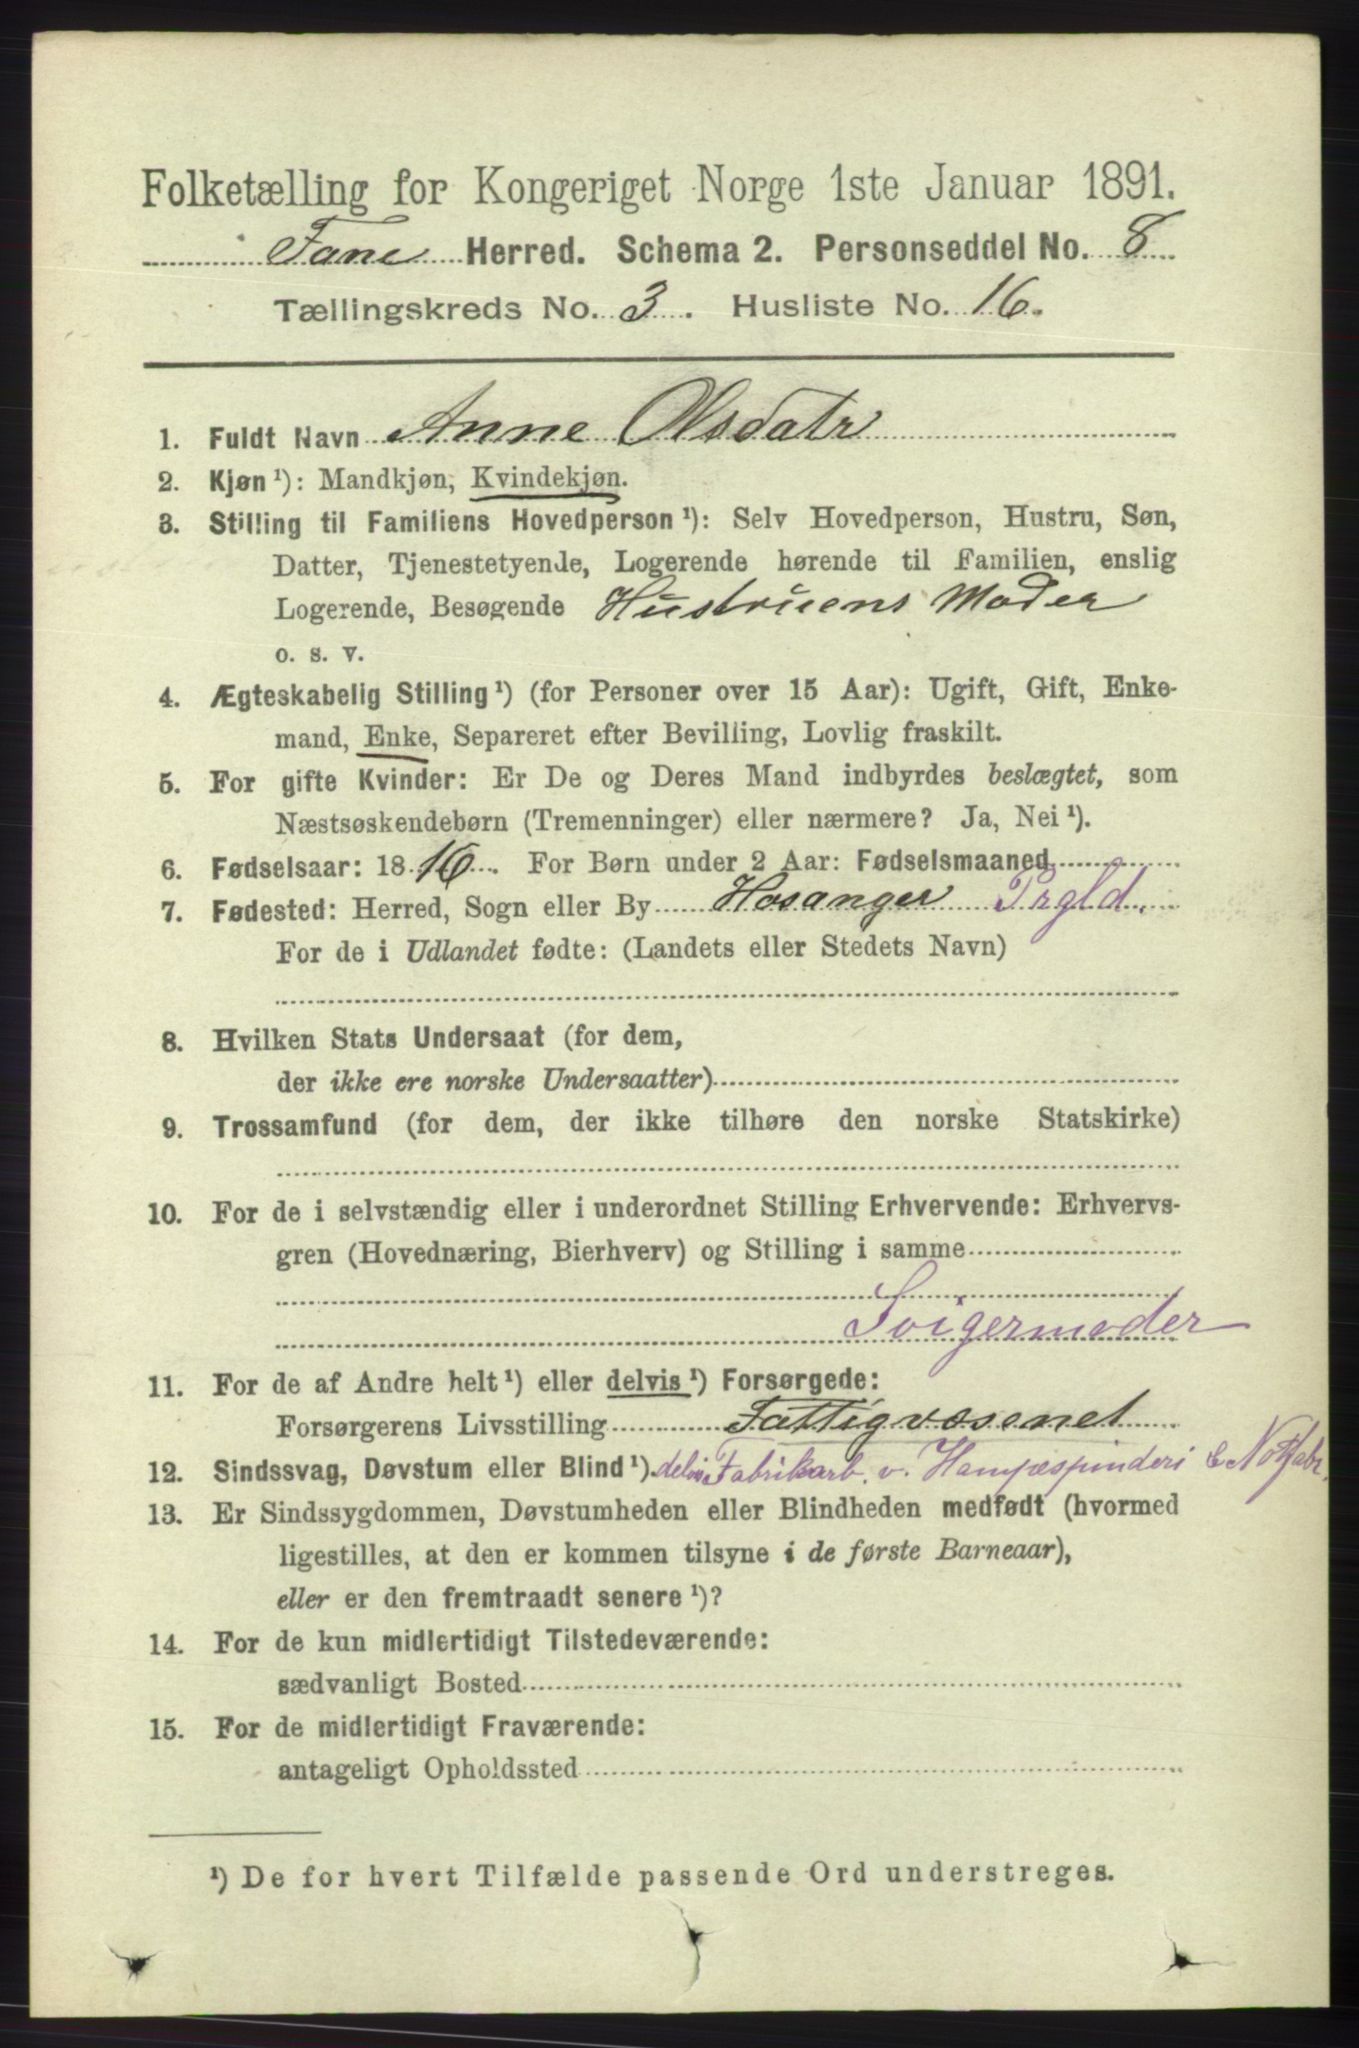 Folketælling for Kongeriget Norge 1ste Januar 1891.
Fane Herred. Schema 2. Personseddel No. 8
Tællingskreds No. 3. Husliste No. 16.
1. Fuldt Navn Anne Olsdatr
2. Kjøn ¹): Mandkjøn, Kvindekjøn.
3. Stilling til Familiens Hovedperson ¹): Selv Hovedperson, Hustru, Søn,
Datter, Tjenestetyende, Logerende hørende til Familien, enslig
Logerende, Besøgende Hustruens Moder
o. s. v.
4. Ægteskabelig Stilling ¹) (for Personer over 15 Aar): Ugift, Gift, Enke-
mand, Enke, Separeret efter Bevilling, Lovlig fraskilt.
5. For gifte Kvinder: Er De og Deres Mand indbyrdes beslægtet, som
Næstsøskendebørn (Tremenninger) eller nærmere? Ja, Nei ¹).
6. Fødselsaar: 1816. For Børn under 2 Aar: Fødselsmaaned
7. Fødested: Herred, Sogn eller By Hosanger Prgld.
For de i Udlandet fødte: (Landets eller Stedets Navn)
8. Hvilken Stats Undersaat (for dem,
der ikke ere norske Undersaatter)
9. Trossamfund (for dem, der ikke tilhøre den norske Statskirke)
10. For de i selvstændig eller i underordnet Stilling Erhvervende: Erhvervs-
gren (Hovednæring, Bierhverv) og Stilling i samme
Svigermoder
11. For de af Andre helt ¹) eller delvis ¹) Forsørgede:
Forsørgerens Livsstilling Fattigvæsenet
12. Sindssvag, Døvstum eller Blind ¹). delvis Fabrikarb. v. Hampespinderi & Notfabr.
13. Er Sindssygdommen, Døvstumheden eller Blindheden medfødt (hvormed
ligestilles, at den er kommen tilsyne i de første Barneaar),
eller er den fremtraadt senere ¹)?
14. For de kun midlertidigt Tilstedeværende:
sædvanligt Bosted
15. For de midlertidigt Fraværende:
antageligt Opholdssted
¹) De for hvert Tilfælde passende Ord understreges.